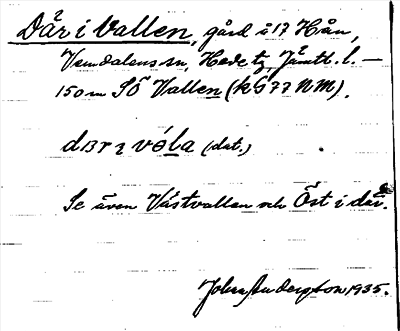 Där i Vallen, gård å 17 Hån,
Vemdalens sn, Hede tg, Jämtl. l. –
150 m SÖ Vallen (kG 77 NM).
våla (dat.)
Se även Västvallen och Öst i där.
John Andersson 1935.